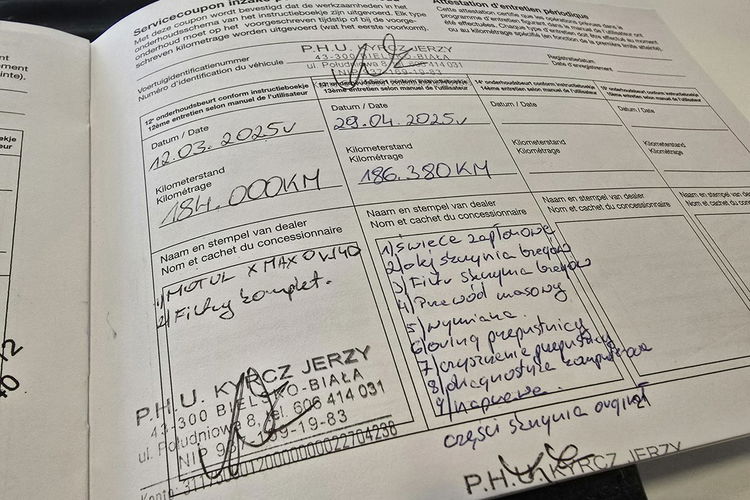 Servicecoupon
Met deze coupon wordt bevestigd dat de werkzaamheden in het
onderhoudsschema van het instructieboekje zijn uitgevoerd. Elk type
onderhoud moet op het voorgeschreven tijdstip of bij de voorge-
schreven kilometrage worden uitgevoerd (wat het eerste voorkomt).
Attestation d'entretien périodique
Cette attestation certifie que les opérations prévues dans le
programme d'entretien du manuel de l'utilisateur ont
été effectuées. Chaque type d'entretien doit être effectué au moment
ou au kilométrage spécifié (en fonction de la première limite atteinte).
Voertuigidentificatienummer
Numéro d'identification du véhicule
P.H.U. KYRCZ JERZY
43-300 BIELSKO-BIAŁA
ul. Południowa 8, 414 031
NIP 189-19-83
Registratiedatum
Date d'enregistrement
12e onderhoudsbeurt conform instructieboekje
12ème entretien selon manuel de l'utilisateur
Datum / Date
12.03.2025
Kilometerstand
Kilométrage
184.000KM
Naam en stempel van dealer
Nom et cachet du concessionnaire
1) MOTUL X MAX 0W40
2) Filtry komplet.
P.H.U. KYRCZ JERZY
43-300 BIELSKO-BIAŁA
ul. Południowa 8, tel. 606 414 031
NIP 189-19-83
13e onderhoudsbeurt conform instructieboekje
13ème entretien selon manuel de l'utilisateur
Datum / Date
29.04.2025
Kilometerstand
Kilométrage
186.380KM
Naam en stempel van dealer
Nom et cachet du concessionnaire
1) świece zapłonowe
2) olej skrzynia biegów
3) Filtr skrzynia biegów
4) Przewód masowy
5) wymiana
6) oring przepustnicy
7) czyszczenie przepustnicy
8) diagnostyka komputerowa
9) naprawa
części skrzynia orginał
P.H.U. KYRCZ JERZY
14e onderhoudsbeurt conform instructieboekje
14ème entretien selon manuel de l'utilisateur
Datum / Date
Kilometerstand
Kilométrage
Naam en stempel van dealer
Nom et cachet du concessionnaire
onderhoudsbeurt conform instructieboekje
entretien selon manuel de l'utilisateur
Datum / Date
Kilometerstand
Kilométrage
Naam en stempel van
Nom et cachet du